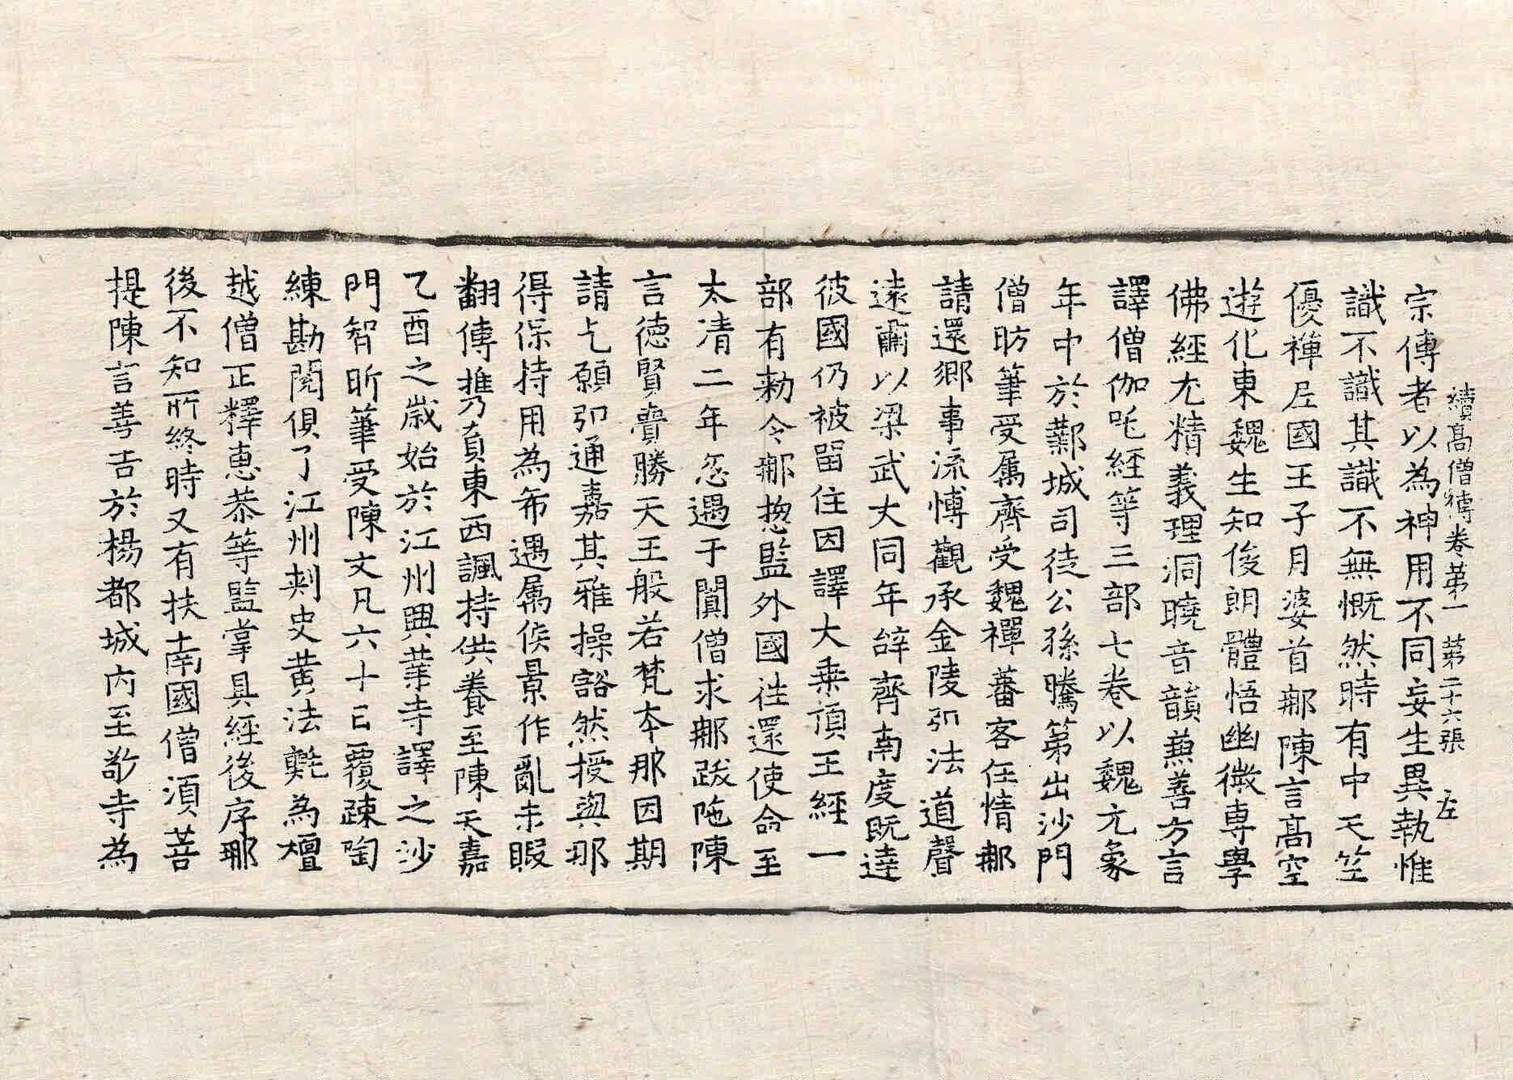 續高僧傳卷第一 第二十六張 左
宗傳者以為神用不同妄生異執惟
識不識其識不無慨然時有中天竺
優禪尼國王子月婆首那陳言高空
遊化東魏生知俊朗體悟幽微專學
佛經尤精義理洞曉音韻兼善方言
譯僧伽吒經等三部七卷以魏元象
年中於鄴城司徒公孫騰第出沙門
僧昉筆受属齊受魏禪蕃客任情那
請還鄉事流博觀承金陵弘法道聲
遠肅以梁武大同年辝齊南度既達
彼國仍被留住因譯大乘頂王經一
部有勑令那揔監外國往還使命至
太清二年忽遇于闐僧求那跋陁陳
言德賢賷勝天王般若梵本那因期
請乞願弘通嘉其雅操豁然授與那
得保持用為希遇属侯景作亂未暇
翻傳携負東西諷持供養至陳天嘉
乙酉之歲始於江州興業寺譯之沙
門智昕筆受陳文凡六十日覆疎陶
練勘閱俱了江州刺史黄法氍為檀
越僧正釋惠恭等監掌具經後序那
後不知所終時又有扶南國僧須菩
提陳言善吉於楊都城内至敬寺為